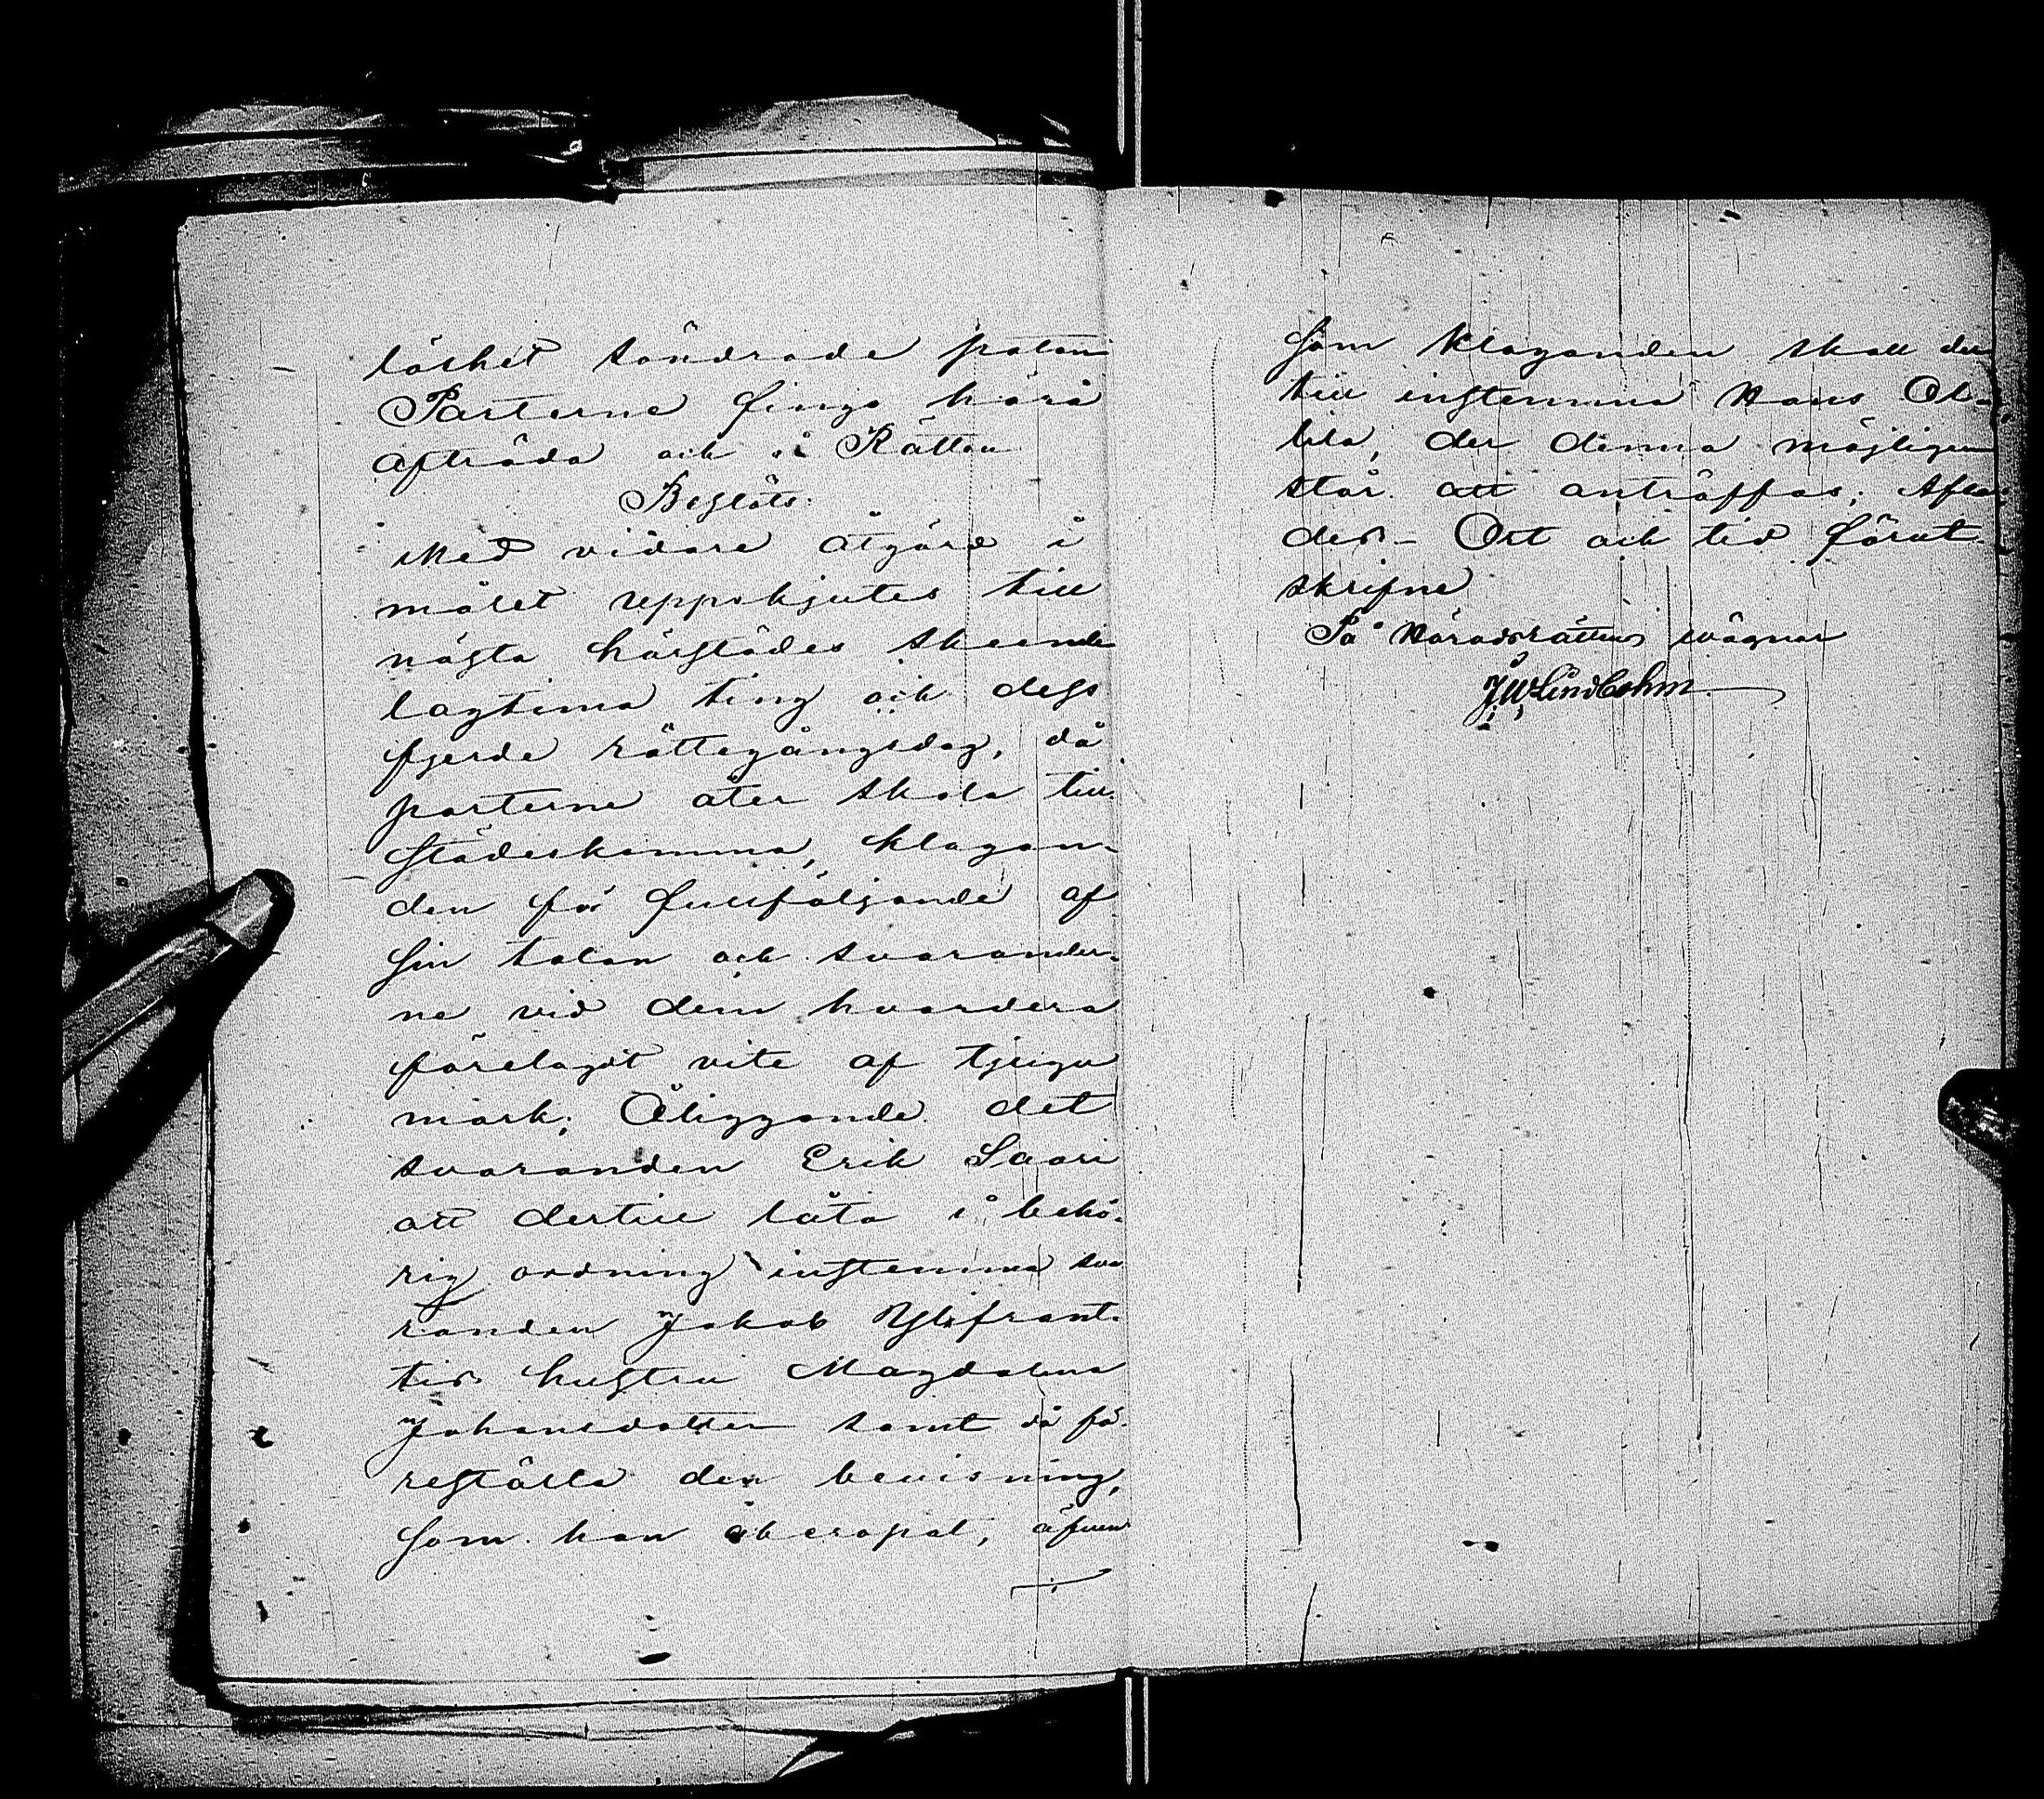 löshet söndrade
Parterne fingo härå
afträda och i Rätten
Beslöts:
Med vidare åtgärd i
målet uppskjutes till
nästa härstädes skeende
lagtima ting och dess
fjerde rättegångsdag, då
parterne åter skola till-
städeskomma, klagan-
den för fullföljande af
sin talan och svarander-
ne vid dem hvardera
förelagdt vite af tjugu
mark; Åliggande det
svaranden Erik Saari
att dertill låta i behö-
rig ordning instemma sva
randen Jakob Ylifrant-
tis hustru Magdalena
Johansdotter samt då fö-
reställa den bevisning,
som han åberopat, äfven
som klaganden skall der
till instemma Hans Ol-
lila, der denna möjligen
står att anträffas; Afsa-
des. Ort och tid förut-
skrifne
På Häradsrättens vägnar
J W Lindbohm